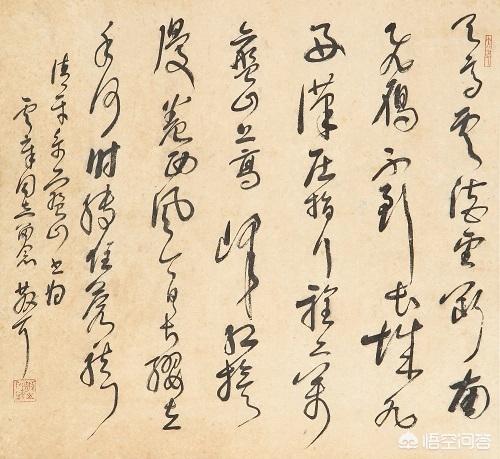 天高雲淡望斷南
飛鴈不到長城非
好漢屈指行程二萬
六盤山上高峰紅旗
漫卷西風今日長纓在
手何時縛住蒼龍
清平樂六盤山 書為
雲章同志留念
悟空问答